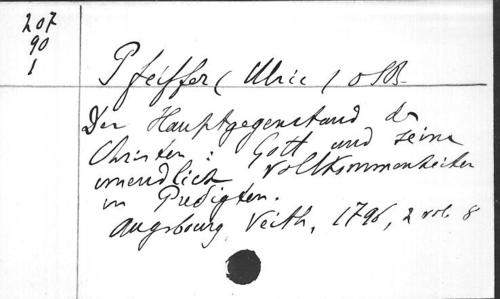 207
90
1
Pfeiffer ( Ulric ) OSB
Der Hauptgegenstand der
Christen : Gott und seine
unendlich Vollkommenheiten
in Predigten.
Augsbourg Veith, 1796, 2 vol. 8